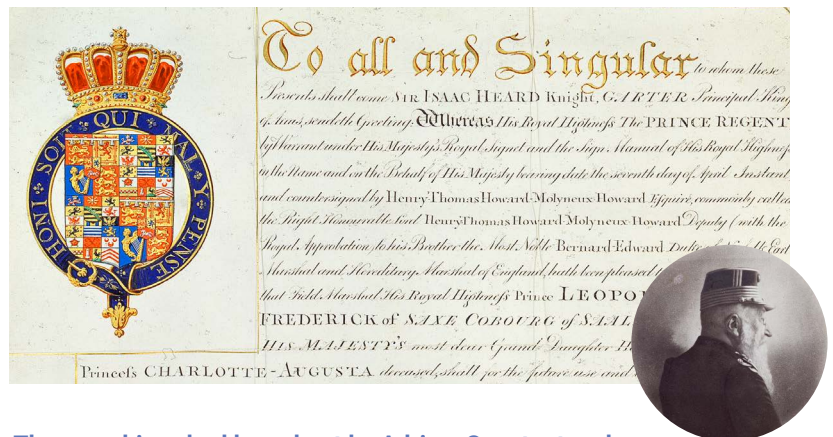 HONI SOIT QUI MAL Y PENSE
To all and Singular to whom these
Presents shall come SIR ISAAC HEARD Knight, GARTER Principal King
of Arms, sendeth Greeting: Whereas His Royal Highness The PRINCE REGENT
by Warrant under His Majesty's Royal Signet and the Sign Manual of His Royal Highness
in the Name and on the Behalf of His Majesty bearing date the seventh day of April Instant
and countersigned by Henry-Thomas Howard-Molyneux-Howard Esquire, commonly called
the Right Honourable Lord Henry Thomas Howard-Molyneux-Howard Deputy (with the
Royal Approbation) to his Brother the Most Noble Bernard-Edward Duke of
Marshal and Hereditary Marshal of England, hath been pleased
that Field Marshal His Royal Highness Prince
FREDERICK of SAXE COBOURG of
HIS MAJESTY'S most dear Grand Daughter
Princess CHARLOTTE-AUGUSTA deceased, shall for the future use and